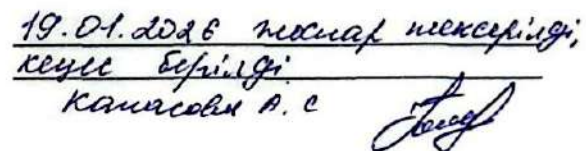 19.01.2026 жоспар тексерілді,
кеңес берілді
Канасова А.С